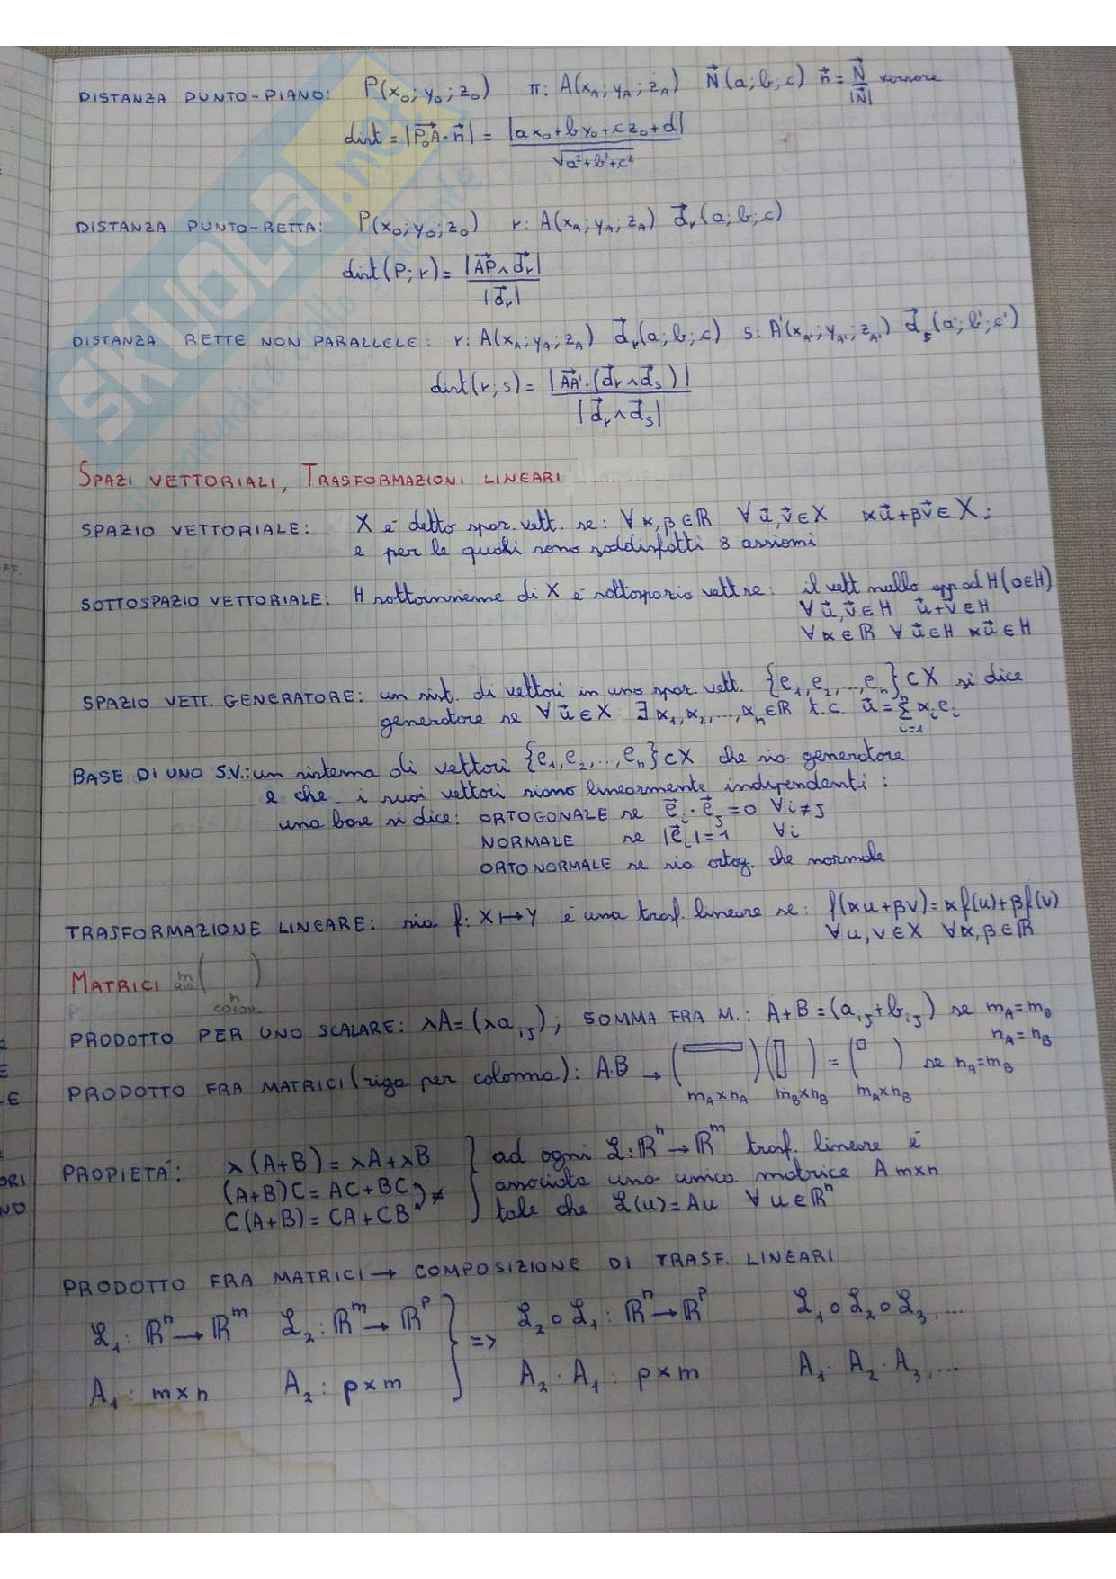 DISTANZA PUNTO-PIANO: P(x₀; y₀; z₀) π: A(x_A; y_A; z_A) N⃗(a; b; c) n⃗ = N⃗/|N⃗| versore
dist = |P₀A⃗ · n⃗| = |ax₀+by₀+cz₀+d| / √(a²+b²+c²)
DISTANZA PUNTO-RETTA: P(x₀; y₀; z₀) r: A(x_A; y_A; z_A) d⃗_r(a; b; c)
dist(P; r) = |AP⃗ ∧ d⃗_r| / |d⃗_r|
DISTANZA RETTE NON PARALLELE: r: A(x_A; y_A; z_A) d⃗_r(a; b; c) s: A'(x_A'; y_A'; z_A') d⃗_s(a'; b'; c')
dist(r; s) = |AA'⃗ · (d⃗_r ∧ d⃗_s)| / |d⃗_r ∧ d⃗_s|
SPAZI VETTORIALI, TRASFORMAZIONI LINEARI
SPAZIO VETTORIALE: X è detto spaz. vett. se: ∀ α, β ∈ ℝ ∀ u⃗, v⃗ ∈ X αu⃗ + βv⃗ ∈ X;
e per le quali sono soddisfatti 8 assiomi
SOTTOSPAZIO VETTORIALE: H sottoinsieme di X è sottospazio vett se: il vett nullo app ad H (0∈H)
∀ u⃗, v⃗ ∈ H u⃗ + v⃗ ∈ H
∀ α ∈ ℝ ∀ u⃗ ∈ H αu⃗ ∈ H
SPAZIO VETT. GENERATORE: un sist. di vettori in uno spaz. vett. {e₁, e₂, ..., eₙ} ⊂ X si dice
generatore se ∀ u⃗ ∈ X ∃ α₁, α₂, ..., αₙ ∈ ℝ t.c. u⃗ = Σⁿᵢ₌₁ αᵢeᵢ
BASE DI UNO S.V.: un sistema di vettori {e₁, e₂, .., eₙ} ⊂ X che sia generatore
e che i suoi vettori siano linearmente indipendenti:
una base si dice: ORTOGONALE se e⃗ᵢ · e⃗ⱼ = 0 ∀ i ≠ j
NORMALE se |e⃗ᵢ| = 1 ∀ i
ORTONORMALE se sia ortog. che normale
TRASFORMAZIONE LINEARE: sia f: X ↦ Y è una trasf. lineare se: f(αu+βv) = αf(u)+βf(v)
∀ u, v ∈ X ∀ α, β ∈ ℝ
MATRICI m ( )
n
PRODOTTO PER UNO SCALARE: λA = (λaᵢⱼ); SOMMA FRA M.: A+B = (aᵢⱼ + bᵢⱼ) se m_A = m_B
n_A = n_B
PRODOTTO FRA MATRICI (riga per colonna): A·B → ( ) ( ) = ( ) se n_A = m_B
m_A × n_A m_B × n_B m_A × n_B
PROPIETA': λ(A+B) = λA + λB } ad ogni ℒ: ℝⁿ → ℝᵐ trasf. lineare è
(A+B)C = AC + BC ≠ associata una unica matrice A m×n
C(A+B) = CA + CB tale che ℒ(u) = Au ∀ u ∈ ℝⁿ
PRODOTTO FRA MATRICI → COMPOSIZIONE DI TRASF. LINEARI
ℒ₁: ℝⁿ → ℝᵐ ℒ₂: ℝᵐ → ℝᵖ } => ℒ₂ ∘ ℒ₁: ℝⁿ → ℝᵖ ℒ₁ ∘ ℒ₂ ∘ ℒ₃, ...
A₁: m×n A₂: p×m A₂ · A₁: p×m A₁ · A₂ · A₃, ...
SKUOLA.net